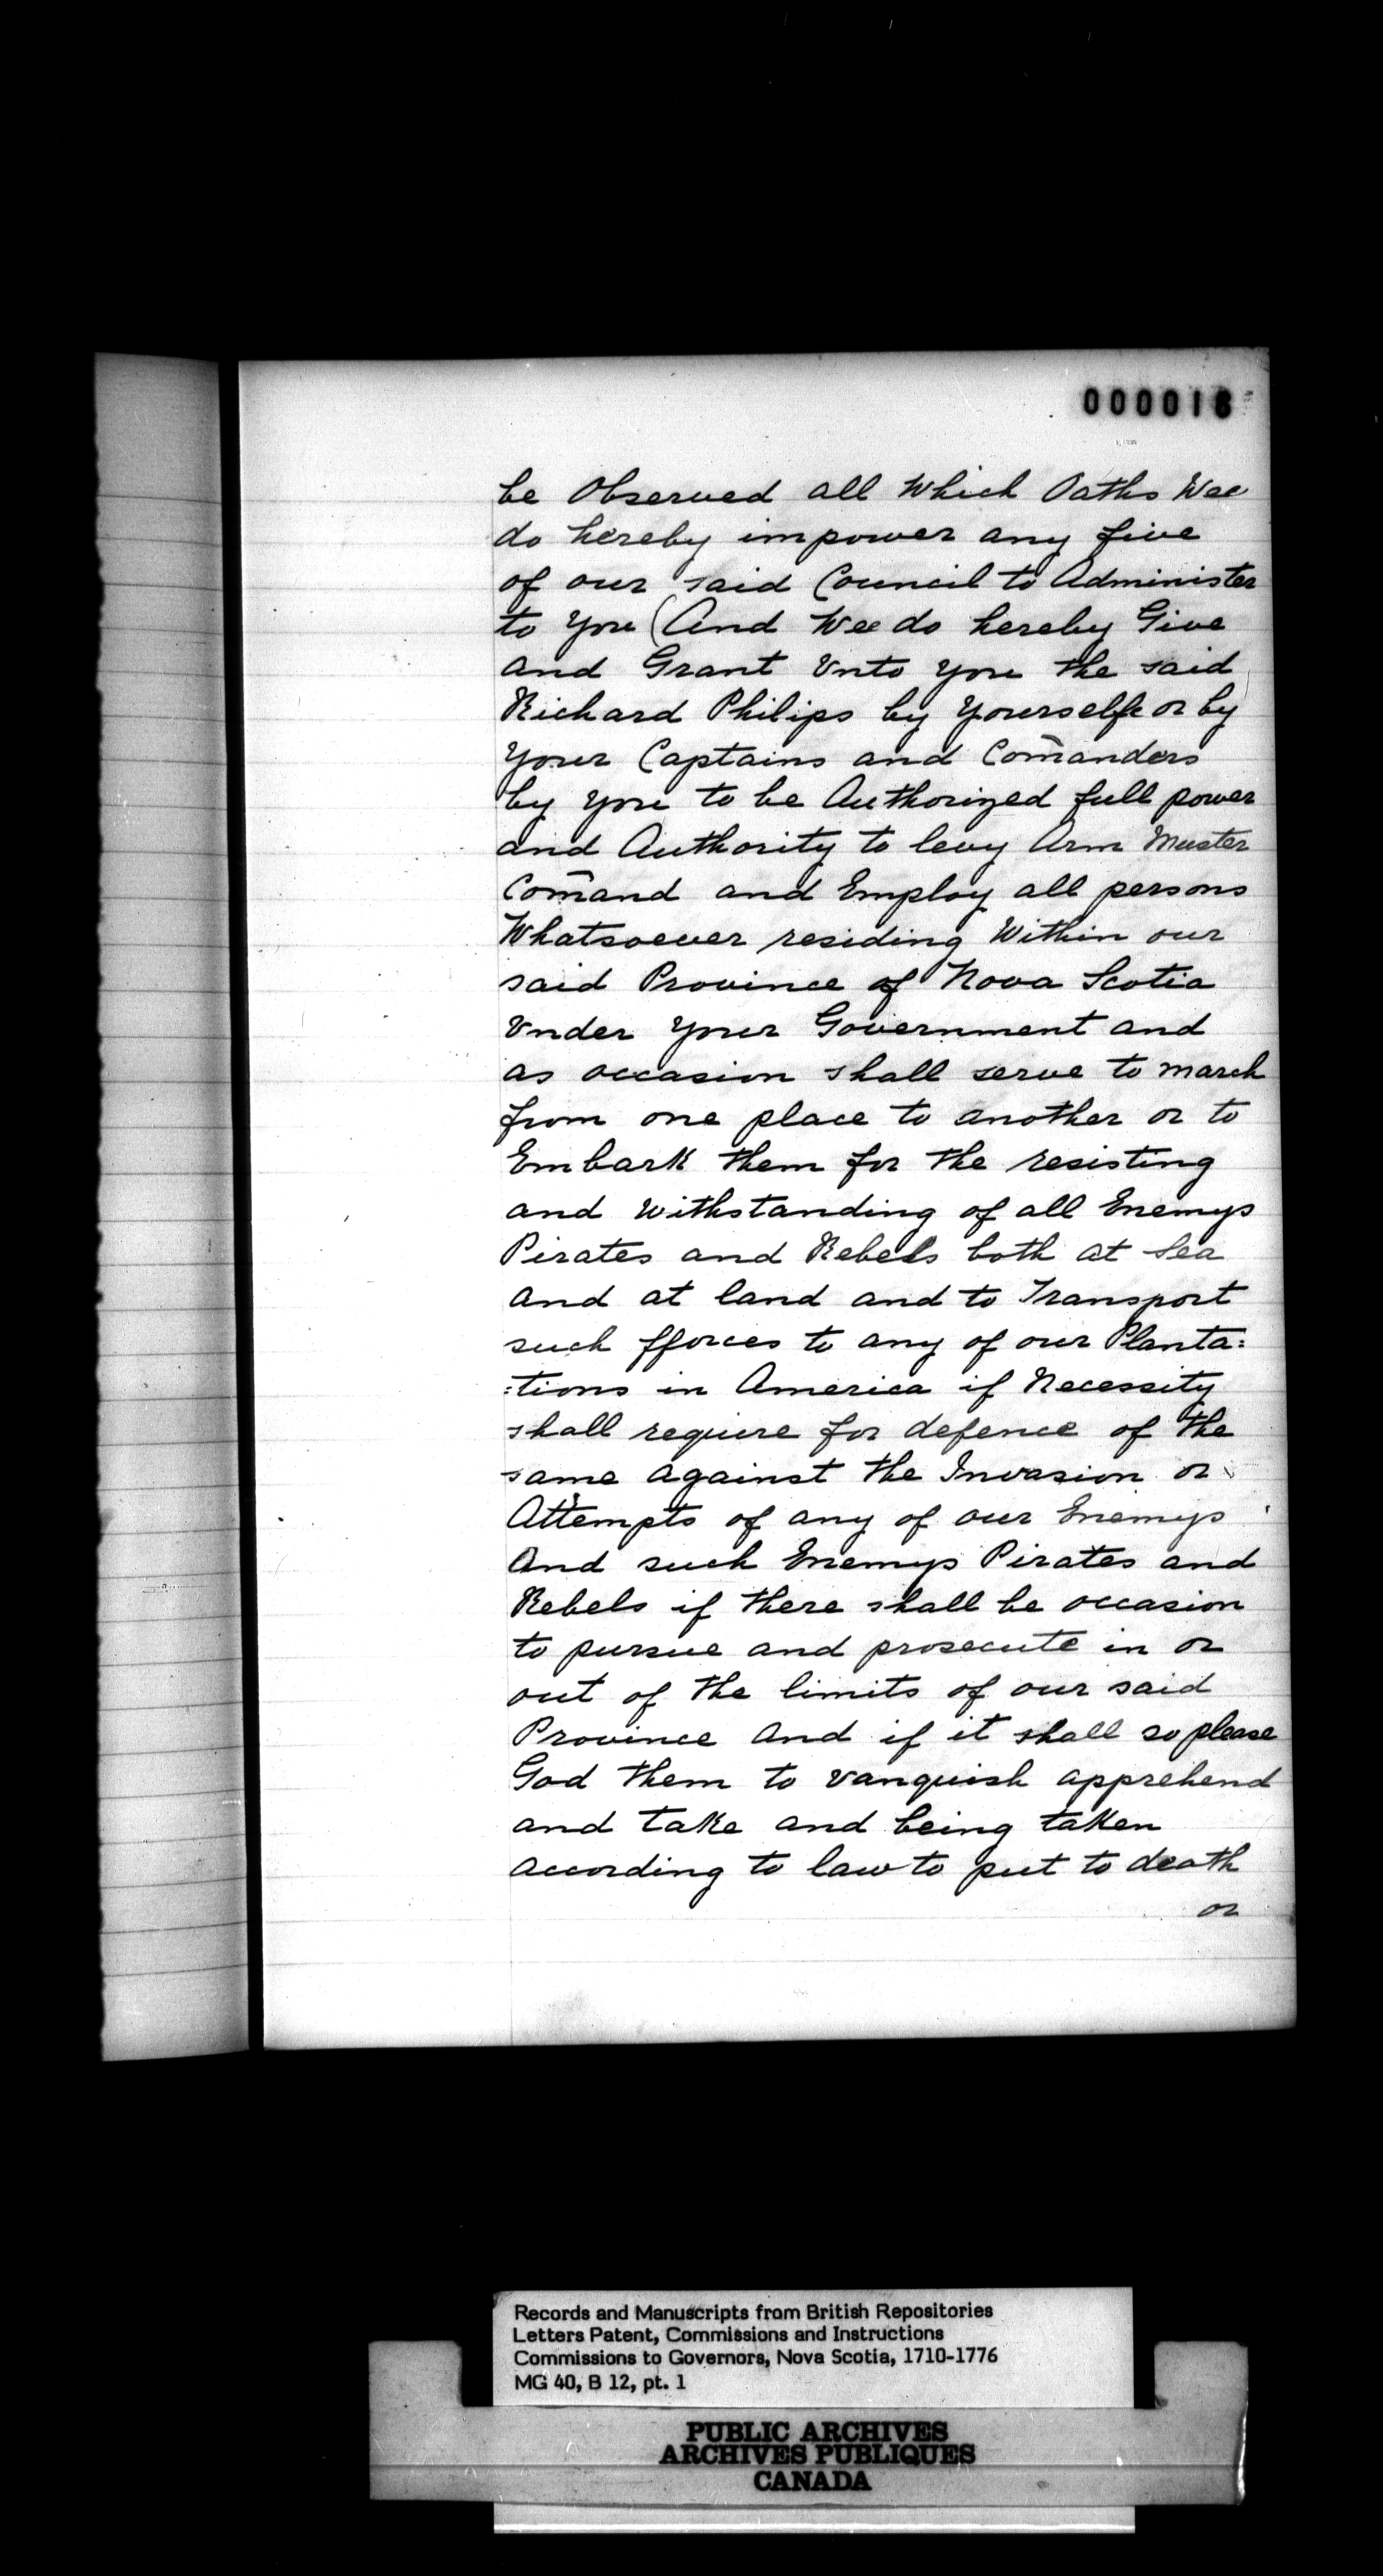 000016
be Observed all Which Oaths Wee
do hereby impower any five
of our said Council to Administer
to You (And Wee do hereby Give
and Grant Vnto you the said
Richard Philips by Yourselfe or by
your Captains and Com̃anders
by you to be Authorized full power
and Authority to levy Arm Muster
Com̃and and Employ all persons
Whatsoever residing Within our
said Province of Nova Scotia
Vnder your Government and
as occasion shall serve to march
from one place to another or to
Embark them for the resisting
and withstanding of all Enemys
Pirates and Rebels both at Sea
and at land and to Transport
such fforces to any of our Planta:
:tions in America if Necessity
shall require for defence of the
same against the Invasion or
Attempts of any of our Enemys
And such Enemys Pirates and
Rebels if there shall be occasion
to pursue and prosecute in or
out of the limits of our said
Province and if it shall so please
God them to vanquish apprehend
and take and being taken
according to law to put to death
or
Records and Manuscripts from British Repositories
Letters Patent, Commissions and Instructions
Commissions to Governors, Nova Scotia, 1710-1776
MG 40, B 12, pt. 1
PUBLIC ARCHIVES
ARCHIVES PUBLIQUES
CANADA